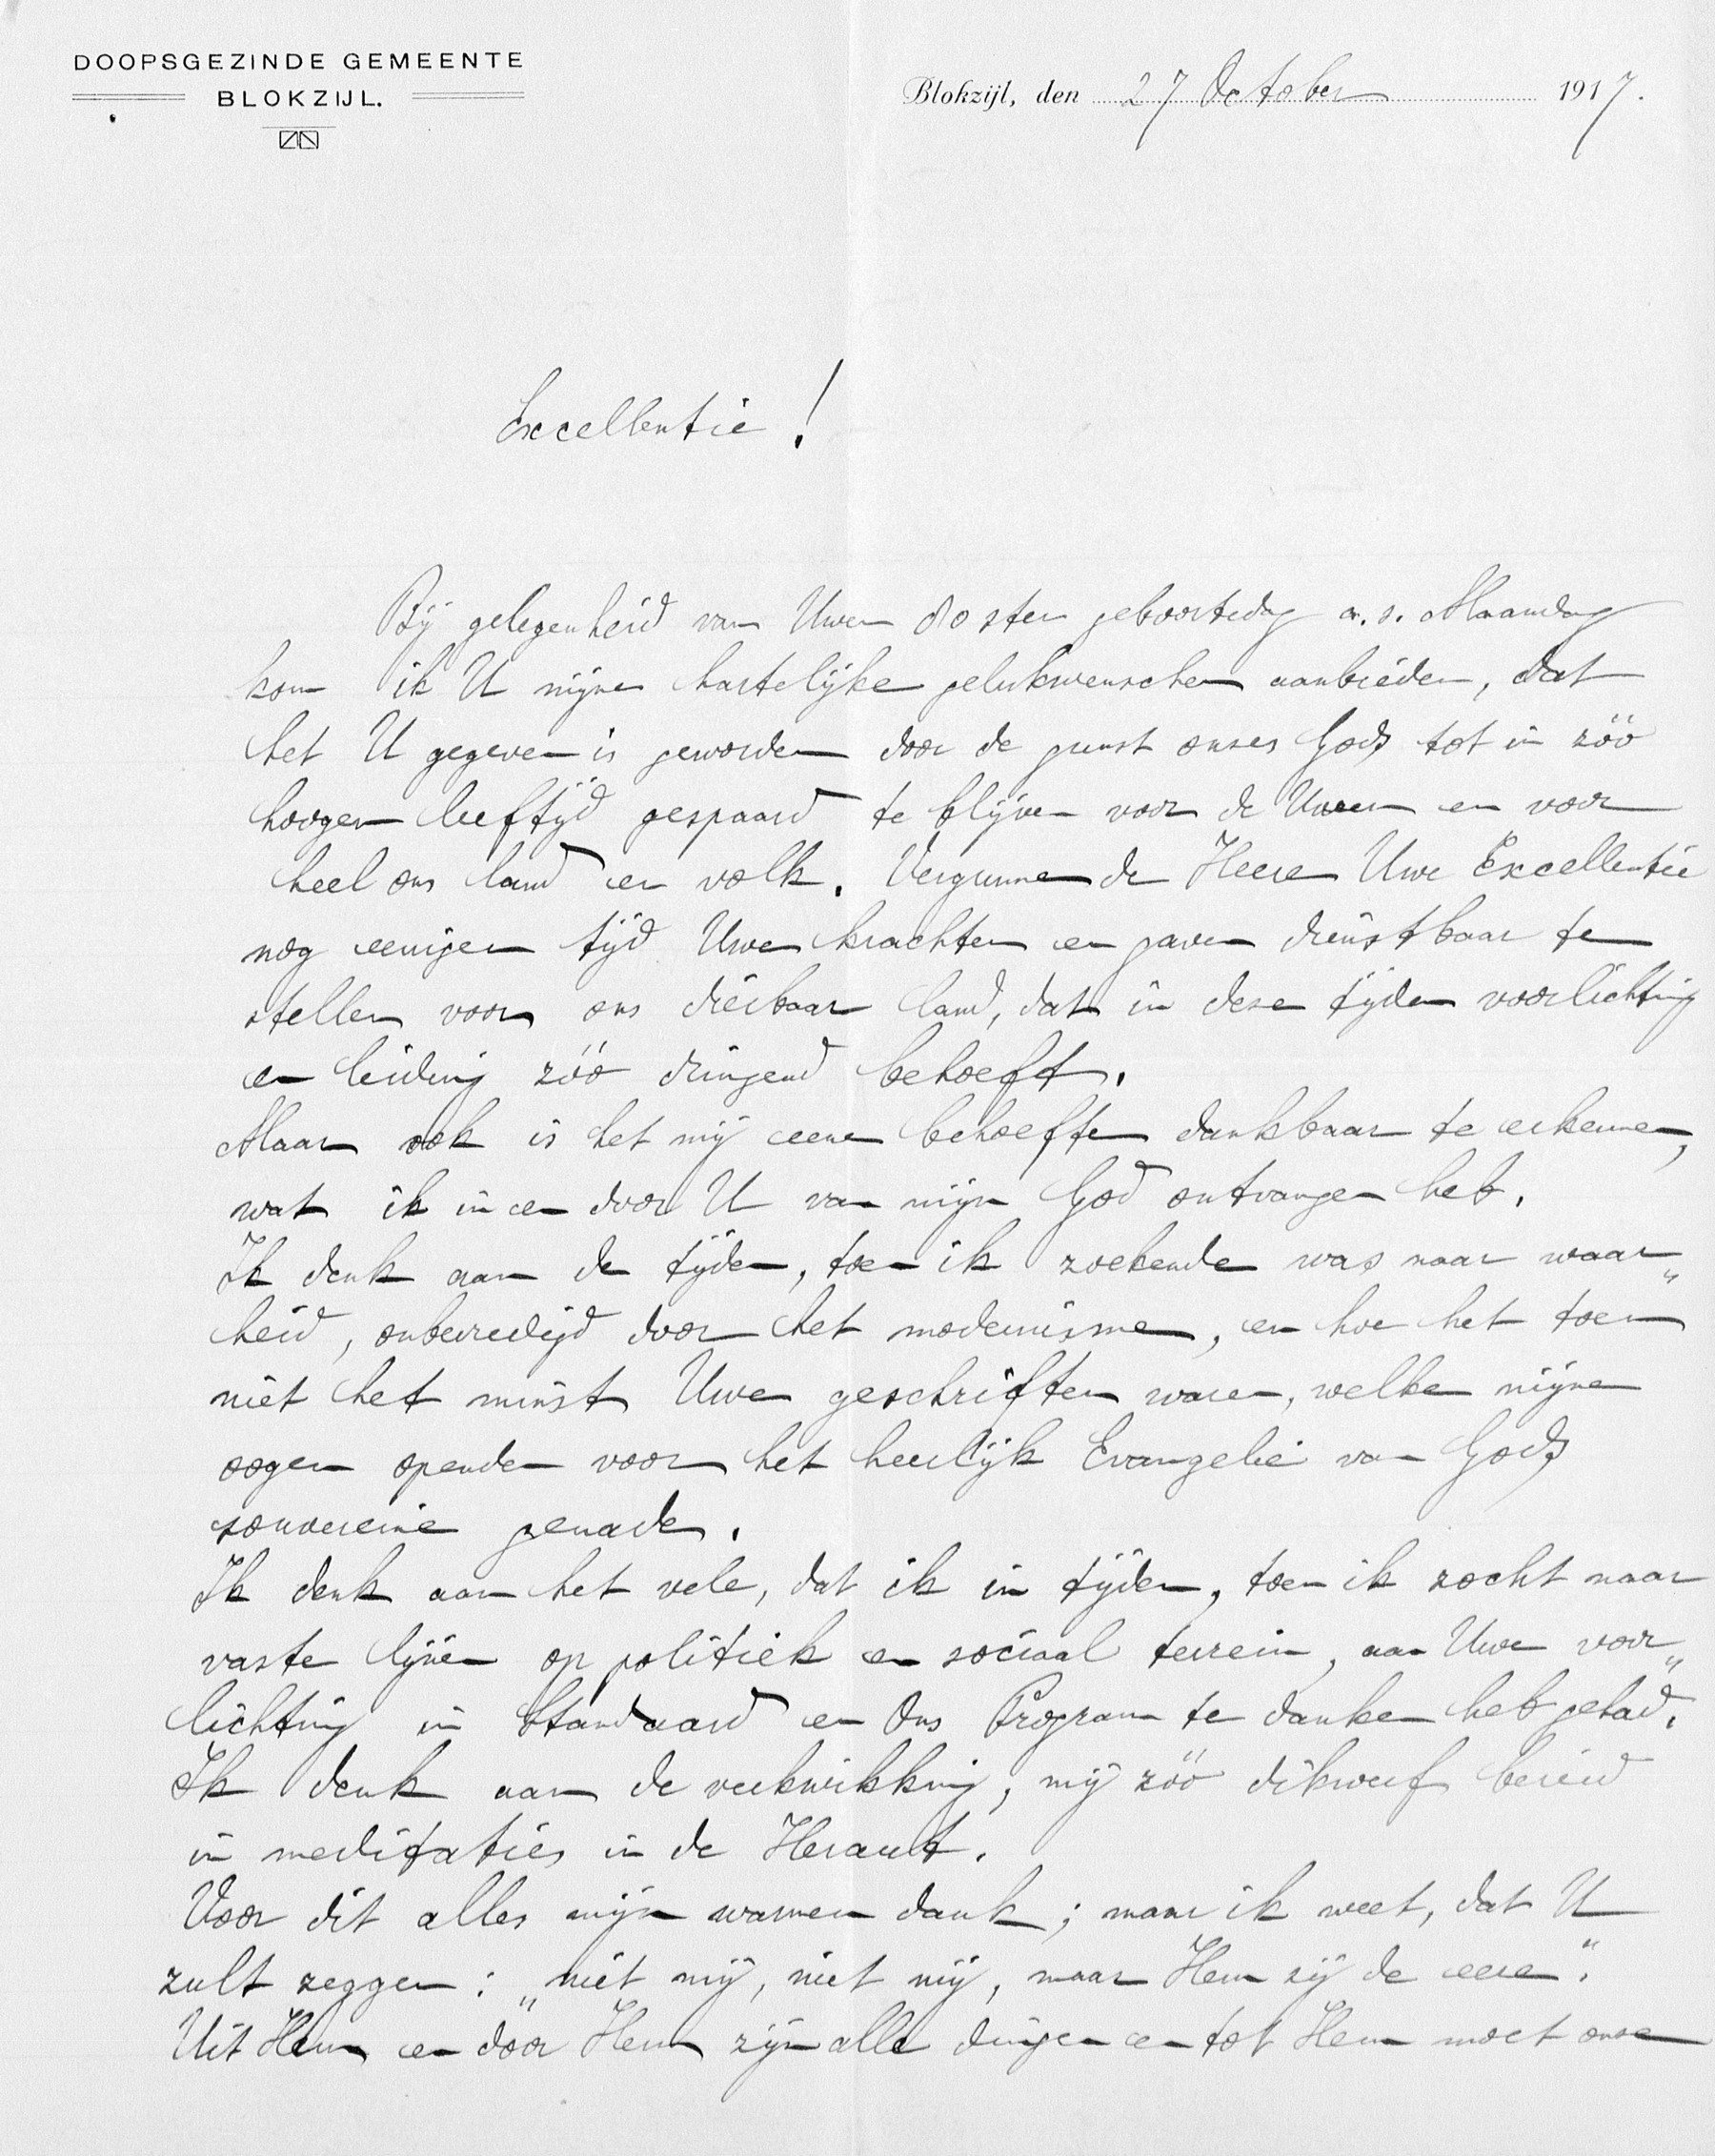 DOOPSGEZINDE GEMEENTE
BLOKZIJL.
Blokzijl, den 27 October 1917.
Excellentie!
Bij gelegenheid van Uwen 80sten geboortedag a.s. Maandag
kom ik U mijne hartelijke gelukwenschen aanbieden, dat
het U gegeven is geworden door de gunst onzes Gods tot in zóó
hoogen leeftijd gespaard te blijven voor de Uwen en voor
heel ons land en volk. Vergunne de Heere Uwe Excellentie
nog eenigen tijd Uwe krachten en gaven dienstbaar te
stellen voor ons dierbaar land, dat in deze tijden voorlichting
en leiding zóó dringend behoeft.
Maar ook is het mij eene behoefte dankbaar te erkennen,
wat ik in en door U van mijn God ontvangen heb.
Ik denk aan de tijden, toen ik zoekende was naar waar„
heid, onbevredigd door het modernisme, en hoe het toen
niet het minst Uwe geschriften waren, welke mijne
oogen openden voor het heerlijk Evangelie van Gods
souvereine genade.
Ik denk aan het vele, dat ik in tijden, toen ik zocht naar
vaste lijnen op politiek en sociaal terrein, aan Uwe voor„
lichting in Standaard en Ons Program te danken heb gehad.
Ik denk aan de verkwikking, mij zóó dikwerf bereid
in meditaties in de Heraut.
Voor dit alles mijn warmen dank; maar ik weet, dat U
zult zeggen: „niet mij, niet mij, maar Hem zij de eere".
Uit Hem en door Hem zijn alle dingen en tot Hem moet onze